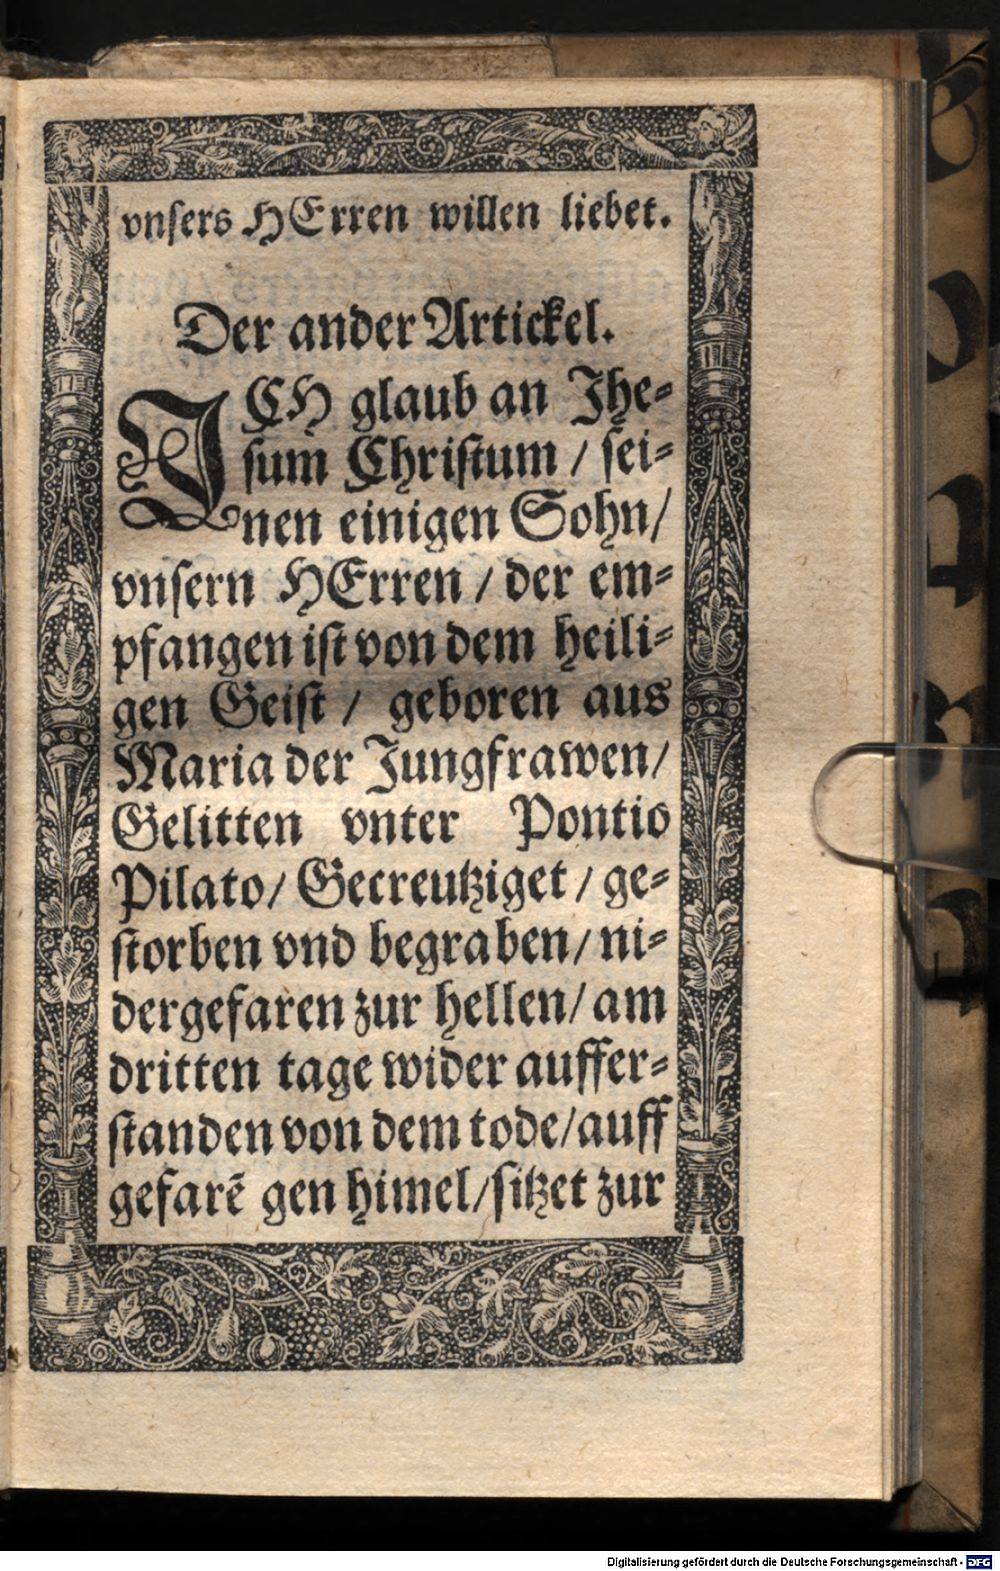 vnsers HErren willen liebet.
Der ander Artickel.
ICH glaub an Jhe=
sum Christum / sei=
nen einigen Sohn/
vnsern HErren / der em=
pfangen ist von dem heili=
gen Geist / geboren aus
Maria der Jungfrawen/
Gelitten vnter Pontio
Pilato/ Gecreutziget / ge=
storben vnd begraben/ ni=
dergefaren zur hellen/ am
dritten tage wider auffer=
standen von dem tode/auff
gefarē gen himel/sitzet zur
Digitalisierung gefördert durch die Deutsche Forschungsgemeinschaft - DFG